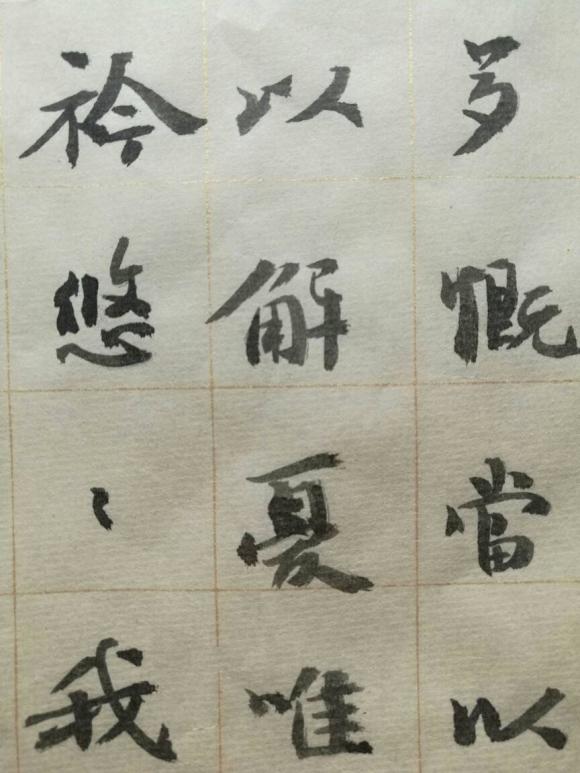 多慨當以
以解憂唯
衿悠〻我